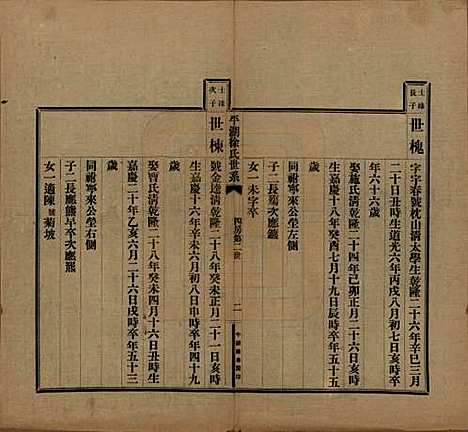 士珠
長子
世槐
字宇春號枕山清太學生乾隆二十六年辛巳三月
二十日丑時生道光六年丙戌八月初七日亥時卒
年六十六歲
娶施氏清乾隆二十四年己卯正月二十六日亥時
生嘉慶十八年癸酉七月十九日辰時卒年五十五
歲
同祔寧來公塋右側
子二長 次應
女一未字卒
平湖徐氏世系
四房第二世
二
士珠
次子
世棟
號金達清乾隆二十八年癸未正月二十一日亥時
生嘉慶十六年辛未六月初八日申時卒年四十九
歲
娶賈氏清乾隆二十八年癸未四月十六日丑時生
嘉慶二十年乙亥六月二十六日戌時卒年五十三
歲
同祔寧來公塋右側
子二長應熊早卒次應羆
女一適陳號菊坡